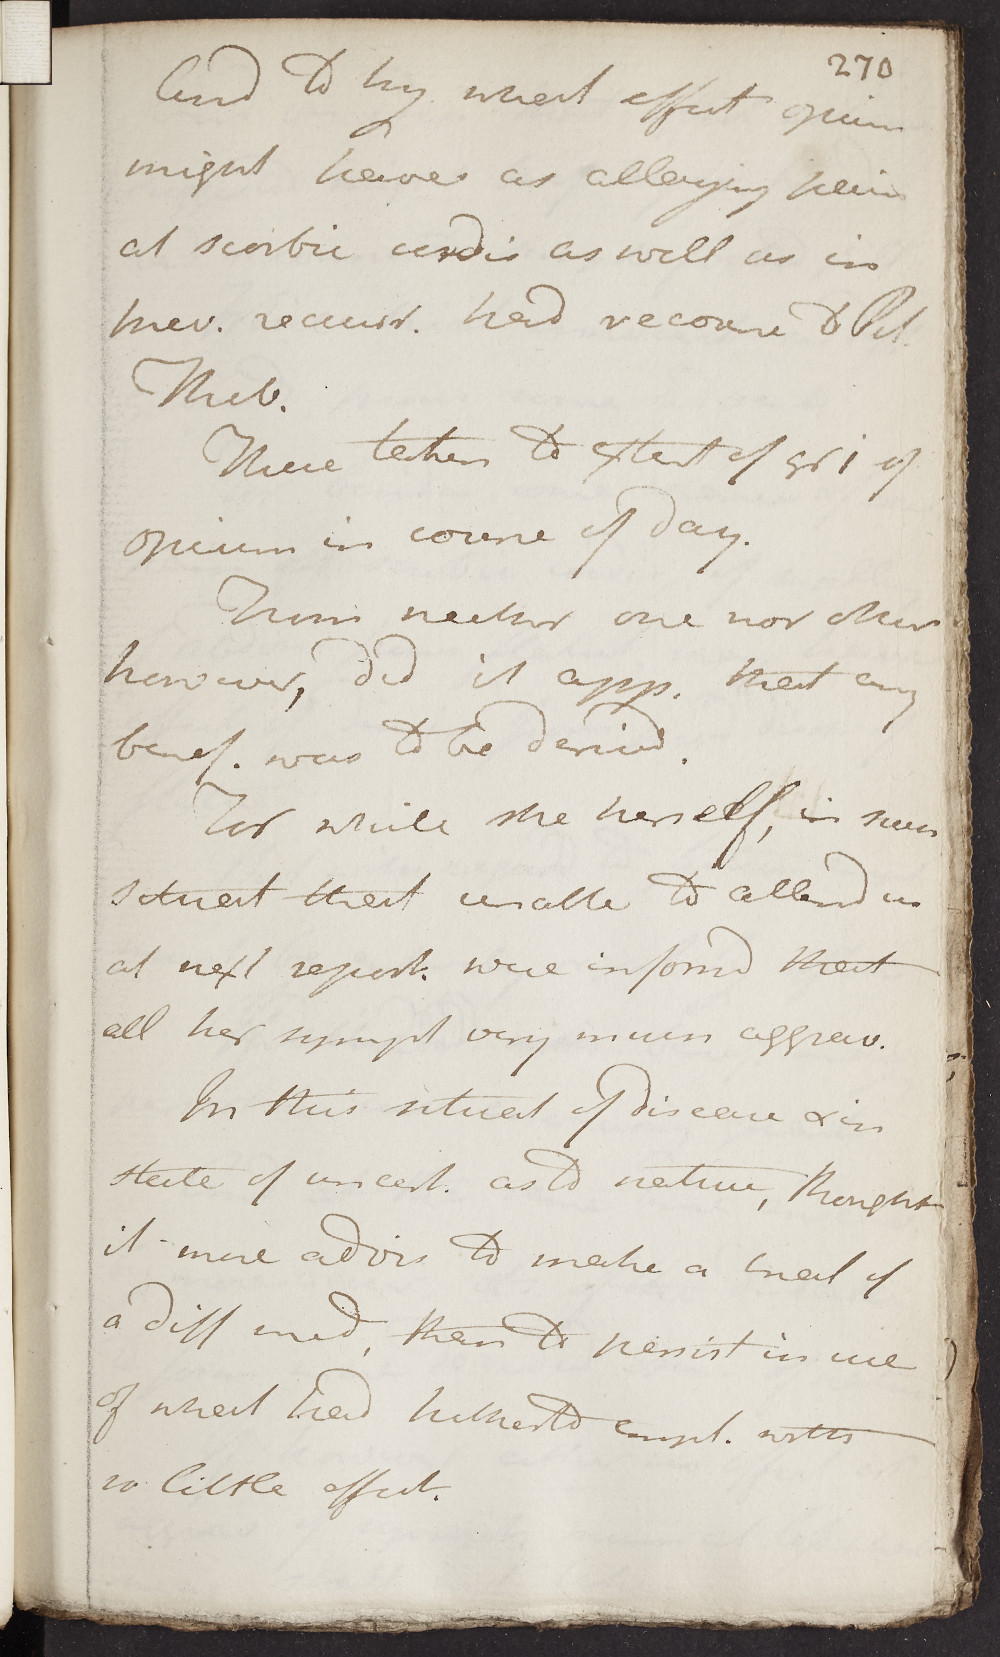 270
And to try what effect opium
might have as allaying pain
at scorbic cordis as well as in
prev. recurr. had recourse to Pil.
Theb.
These taken to extent of gr i of
opium in course of day.
From neither one nor other
however, did it app. that any
benef. was to be derived.
For while she herself, in such
situat that unable to attend us
at next report. were informd that
all her sympt very much aggrav.
In this situat of disease & in
state of uncert. as to nature, thought
it more advis to make a trial of
a diff med, than to persist in use
of what had hitherto empl. with
so little effect.